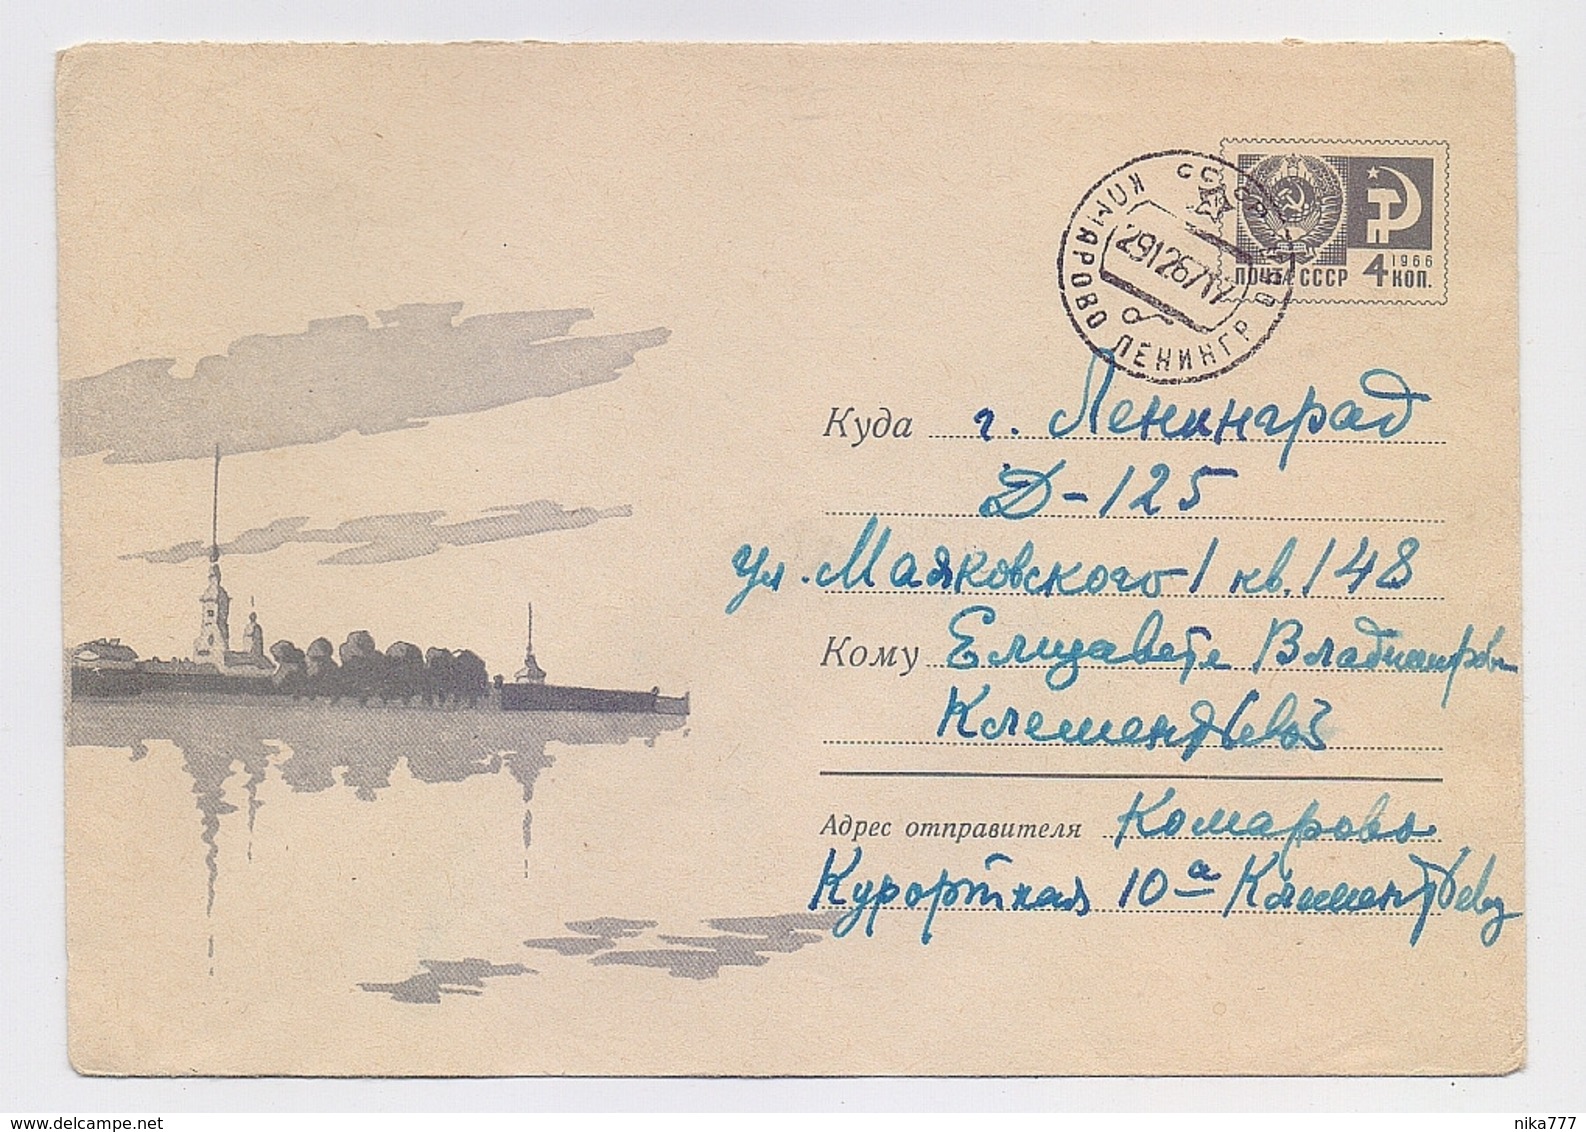 СССР
КОМАРОВО ЛЕНИНГР ОБ
29126717
а
ПОЧТА СССР 4 1966 КОП.
Куда г. Ленинград
Д-125
ул. Маяковского 1 кв. 148
Кому Елизавете Владимировне
Клементьевой
Адрес отправителя Комарово
Курортная 10а Клементьева
www.delcampe.net
nika777